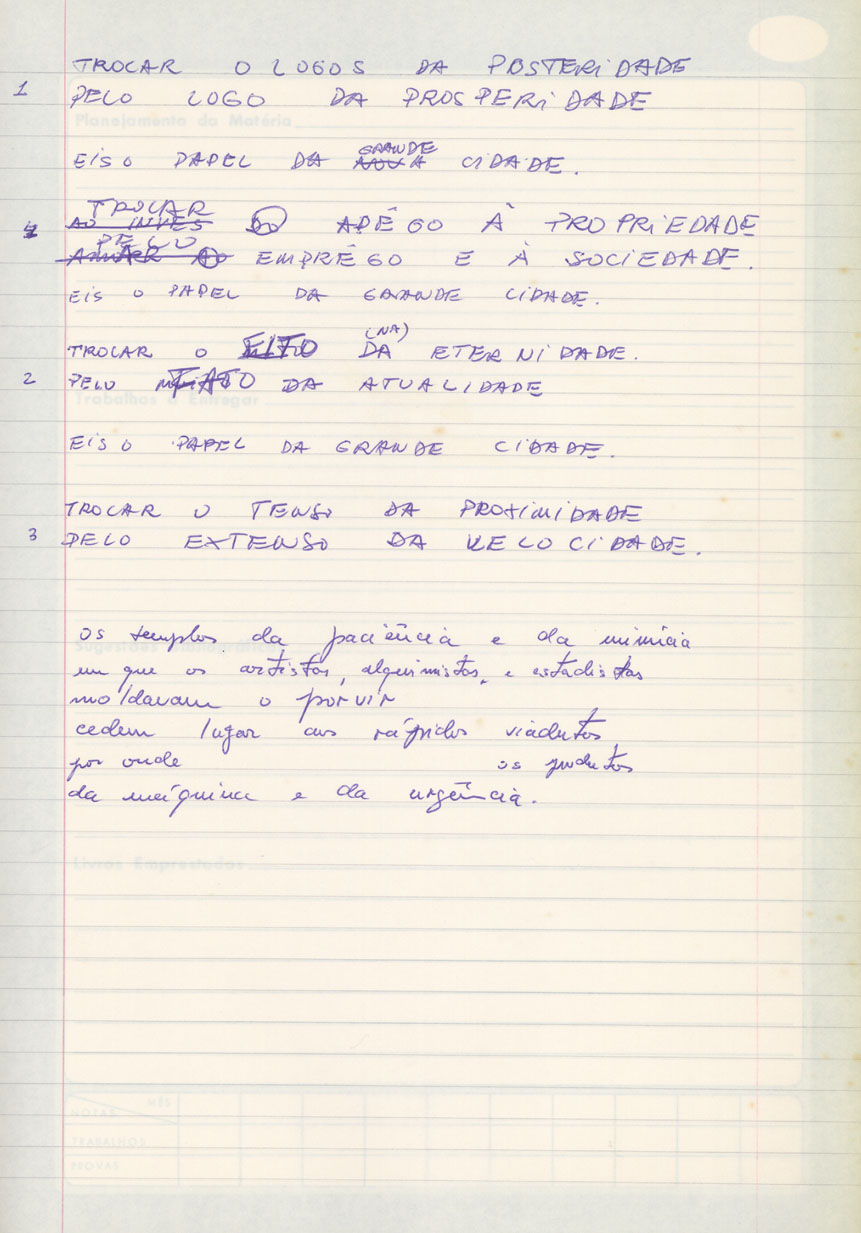 TROCAR O LOGOS DA POSTERIDADE
1 PELO LOGO DA PROSPERIDADE
Planejamento da Matéria
GRANDE
EIS O PAPEL DA NOVA CIDADE.
TROCAR
4 AO INVÉS DO APÊGO À PROPRIEDADE
PELO
EMPRÊGO E À SOCIEDADE.
EIS O PAPEL DA GRANDE CIDADE.
(NA)
TROCAR O MITO DA ETERNIDADE.
2 PELO FATO DA ATUALIDADE
Trabalhos a Entregar
EIS O PAPEL DA GRANDE CIDADE.
TROCAR O TENSO DA PROXIMIDADE
3 PELO EXTENSO DA VELOCIDADE.
os templos da paciência e da minúcia
Sugestões
em que os artistas, alquimistas, e estadistas
moldavam o porvir
cedem lugar aos rápidos viadutos
por onde os produtos
da máquina e da urgência.
Livros Emprestados
MÊS
NOTAS
TRABALHOS
PROVAS